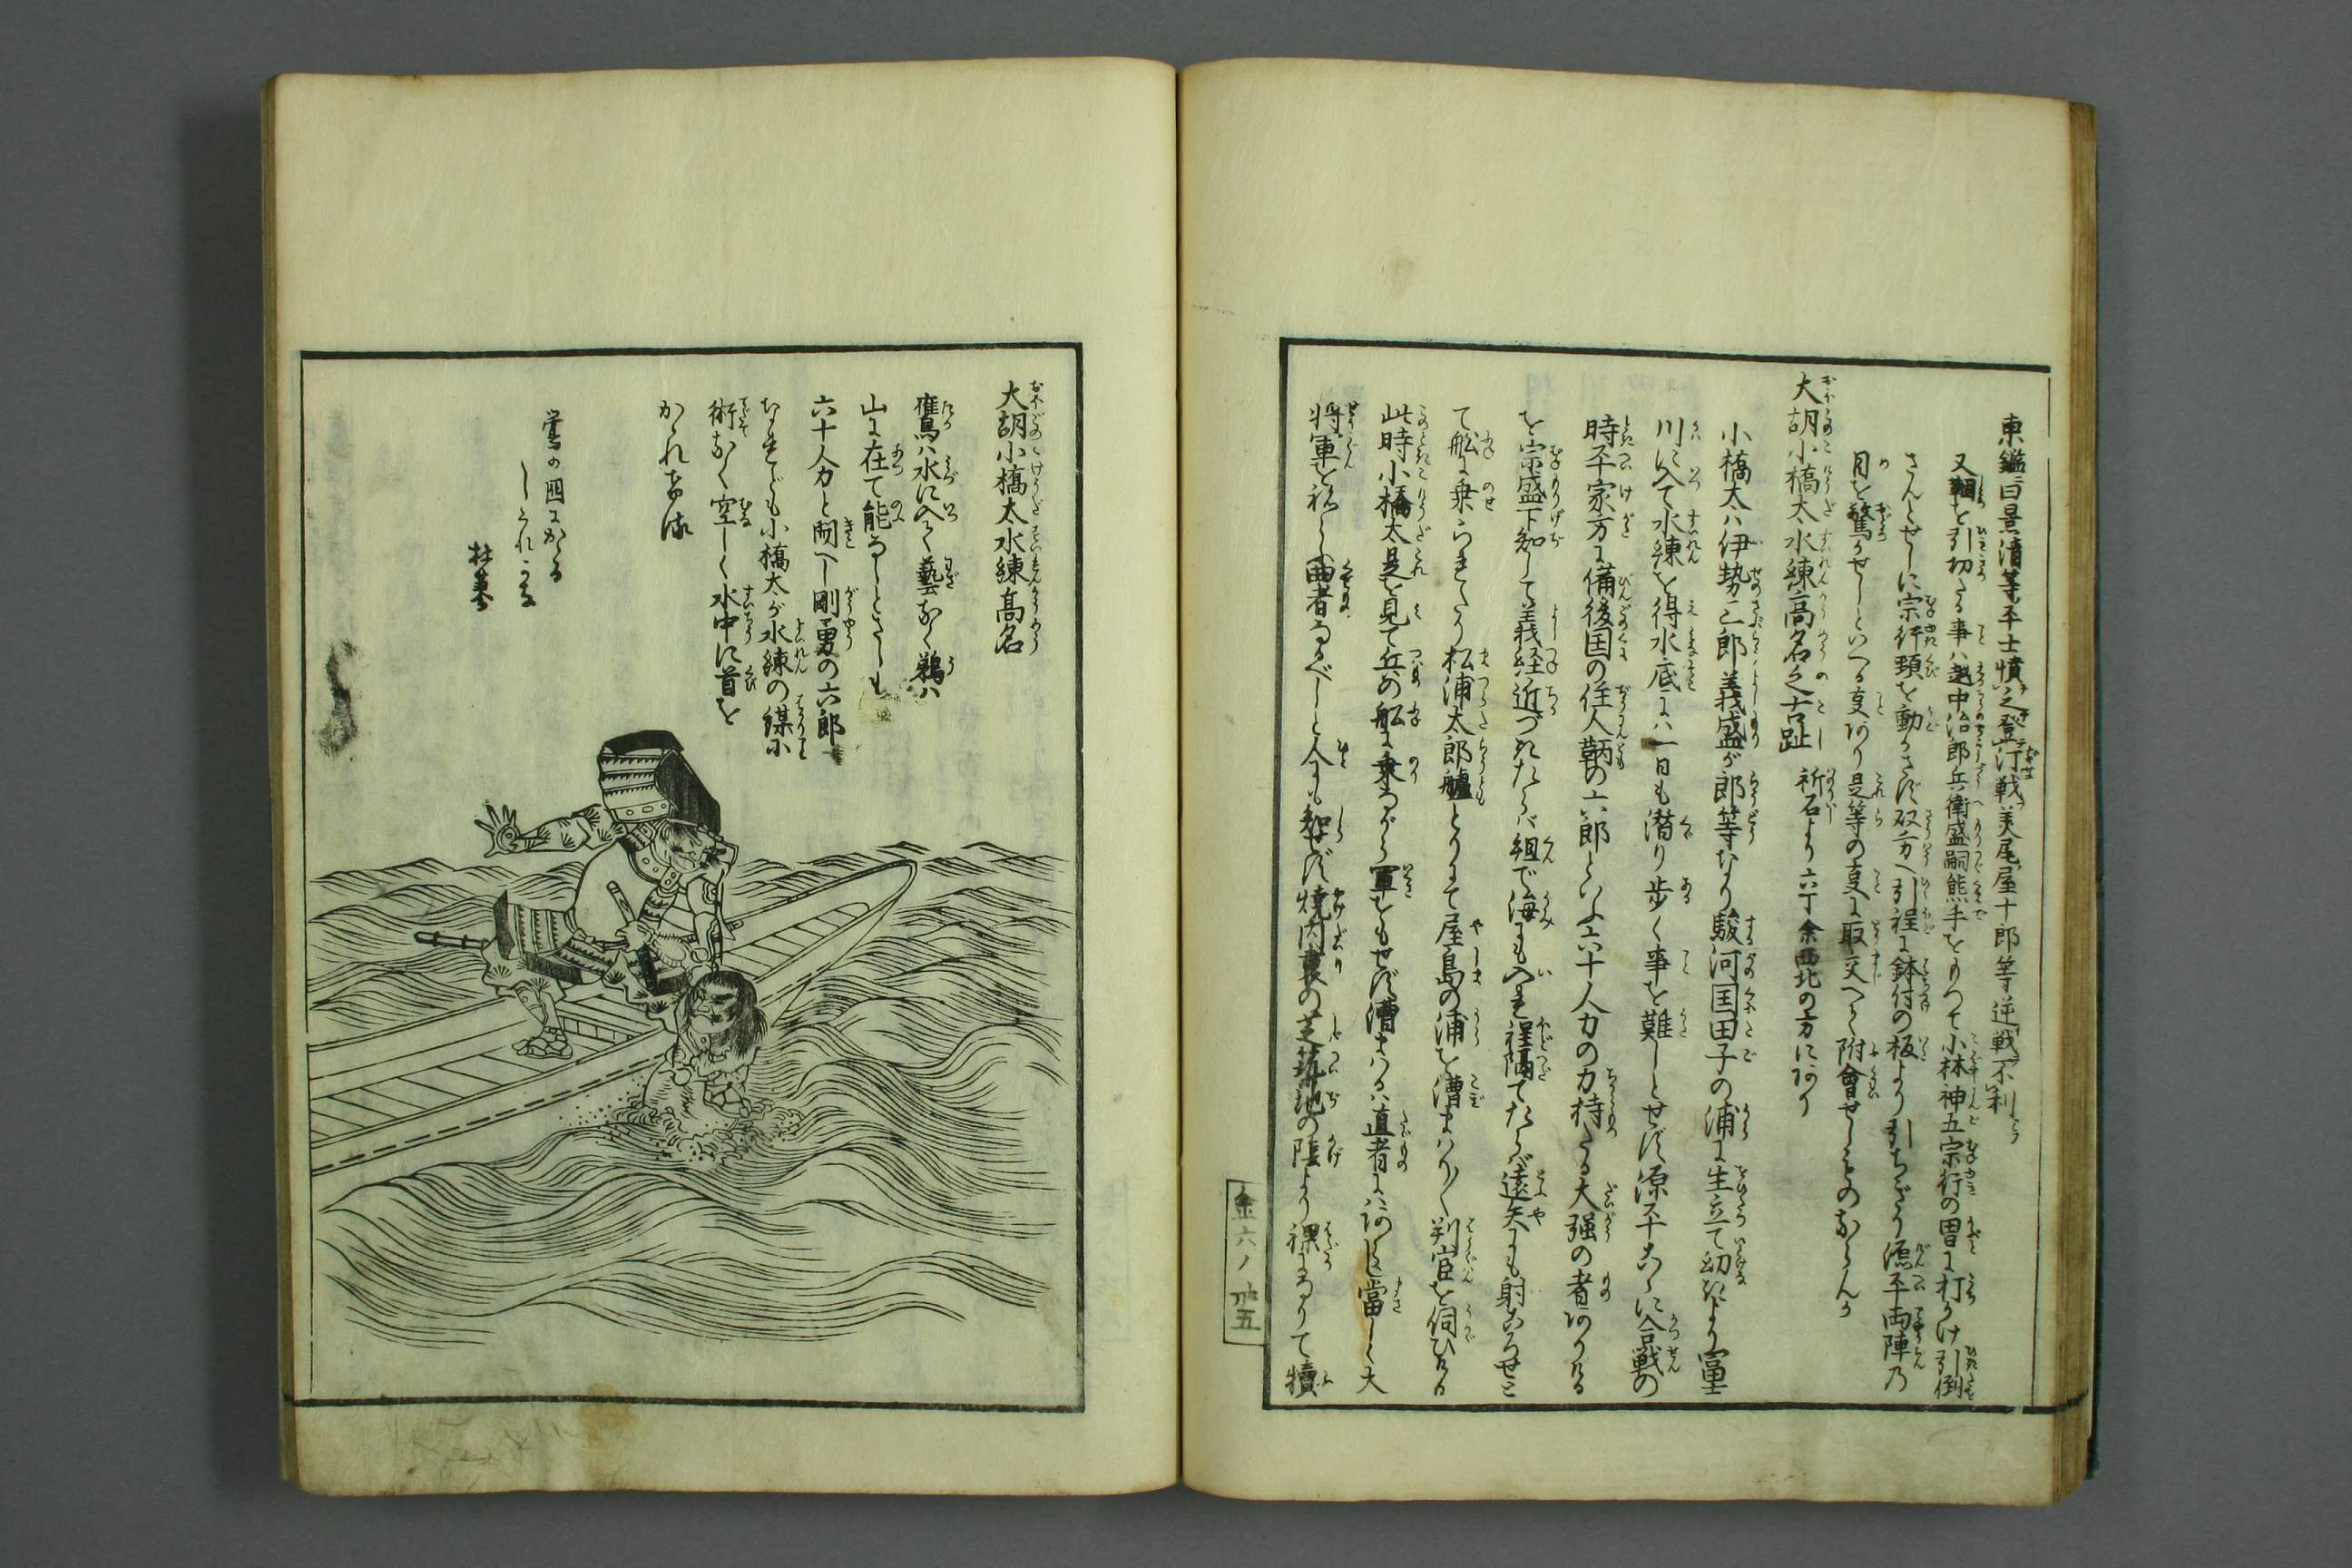 東鑑曰景清等平士憤之登汀戦美尾屋十郎等逆戦不利
又錣を引切たる事ハ越中治郎兵衛盛嗣熊手をもつて小林神五宗行の冑に打かけ引倒
さんとせしに宗行頸を動かさず双方へ引程に鉢付の板より引ちぎり源平両陣乃
目を驚かせしといへる事あり是等の事に取交へて附會せしものならんか
大胡小橋太水練高名之古趾 祈石より六丁余西北の方にあり
小橋太ハ伊勢三郎義盛が郎等なり駿河国田子の浦に生立て幼きより富士
川に入て水練を得水底にハ一日も潜り歩く事を難しとせず源平こゝに合戦の
時平家方に備後国の住人鞆の六郎といふ六十人力の力持たる大強の者ありける
を宗盛下知して義経近づきたらバ組で海にも入れ程隔てたらバ遠矢にも射ころせと
て舩に乗られたり松浦太郎艫とりにて屋島の浦を漕まハりて判官を伺ひける
此時小橋太是を見て兵の舩に乗ながら軍をもせず漕まハるハ直者にハあらじ當しく大
将軍を祢らふ曲者なるべしと人にも知せず焼内裏の芝築地の陰より裸になりて犢
金六ノ 卅五
大胡小橋太水練高名
鷹ハ水に入て藝なく鵜ハ
山に在て能なしとかしも
六十人力と聞へし剛勇の六郎
なれども小橋太が水練の謀小
術なく空しく水中に首を
かゝれける